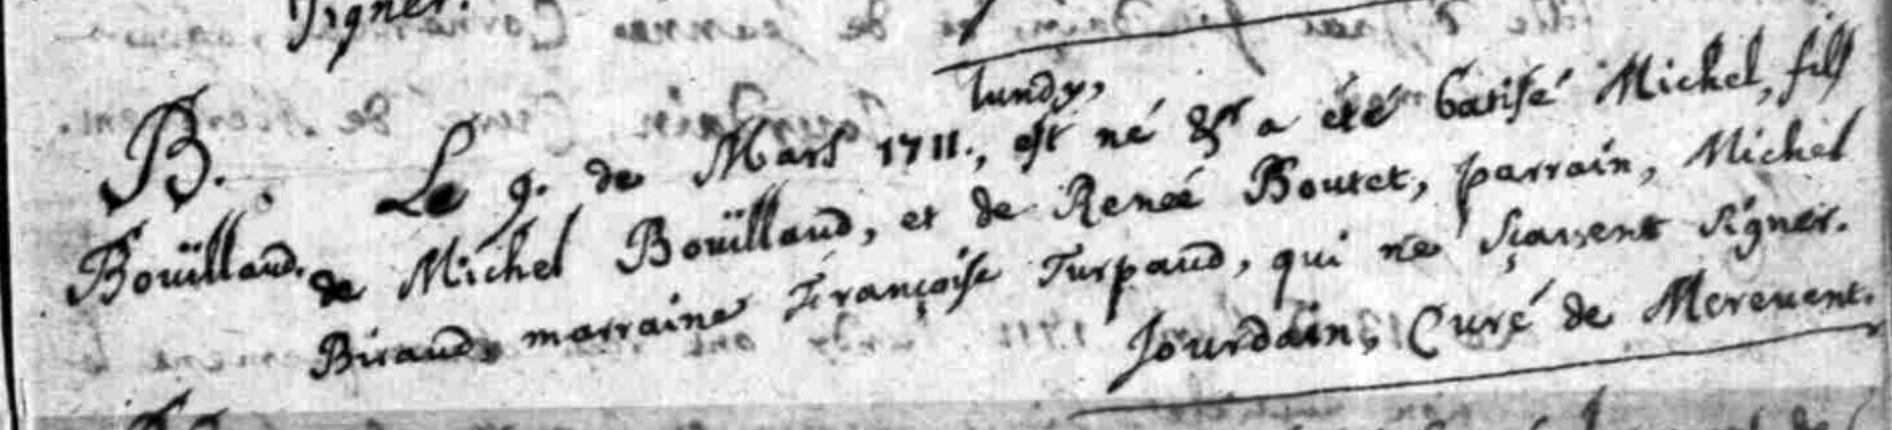 signer.
lundy,
B. Le 9. de Mars 1711., est né & a été batisé Michel, fils
Bouïllaud. de Michel Bouïllaud, et de Reneé Boutet, parrain, Michel
Biraud, marraine Françoise Turpaud, qui ne sçavent signer.
Jourdain, Curé de Merevent.